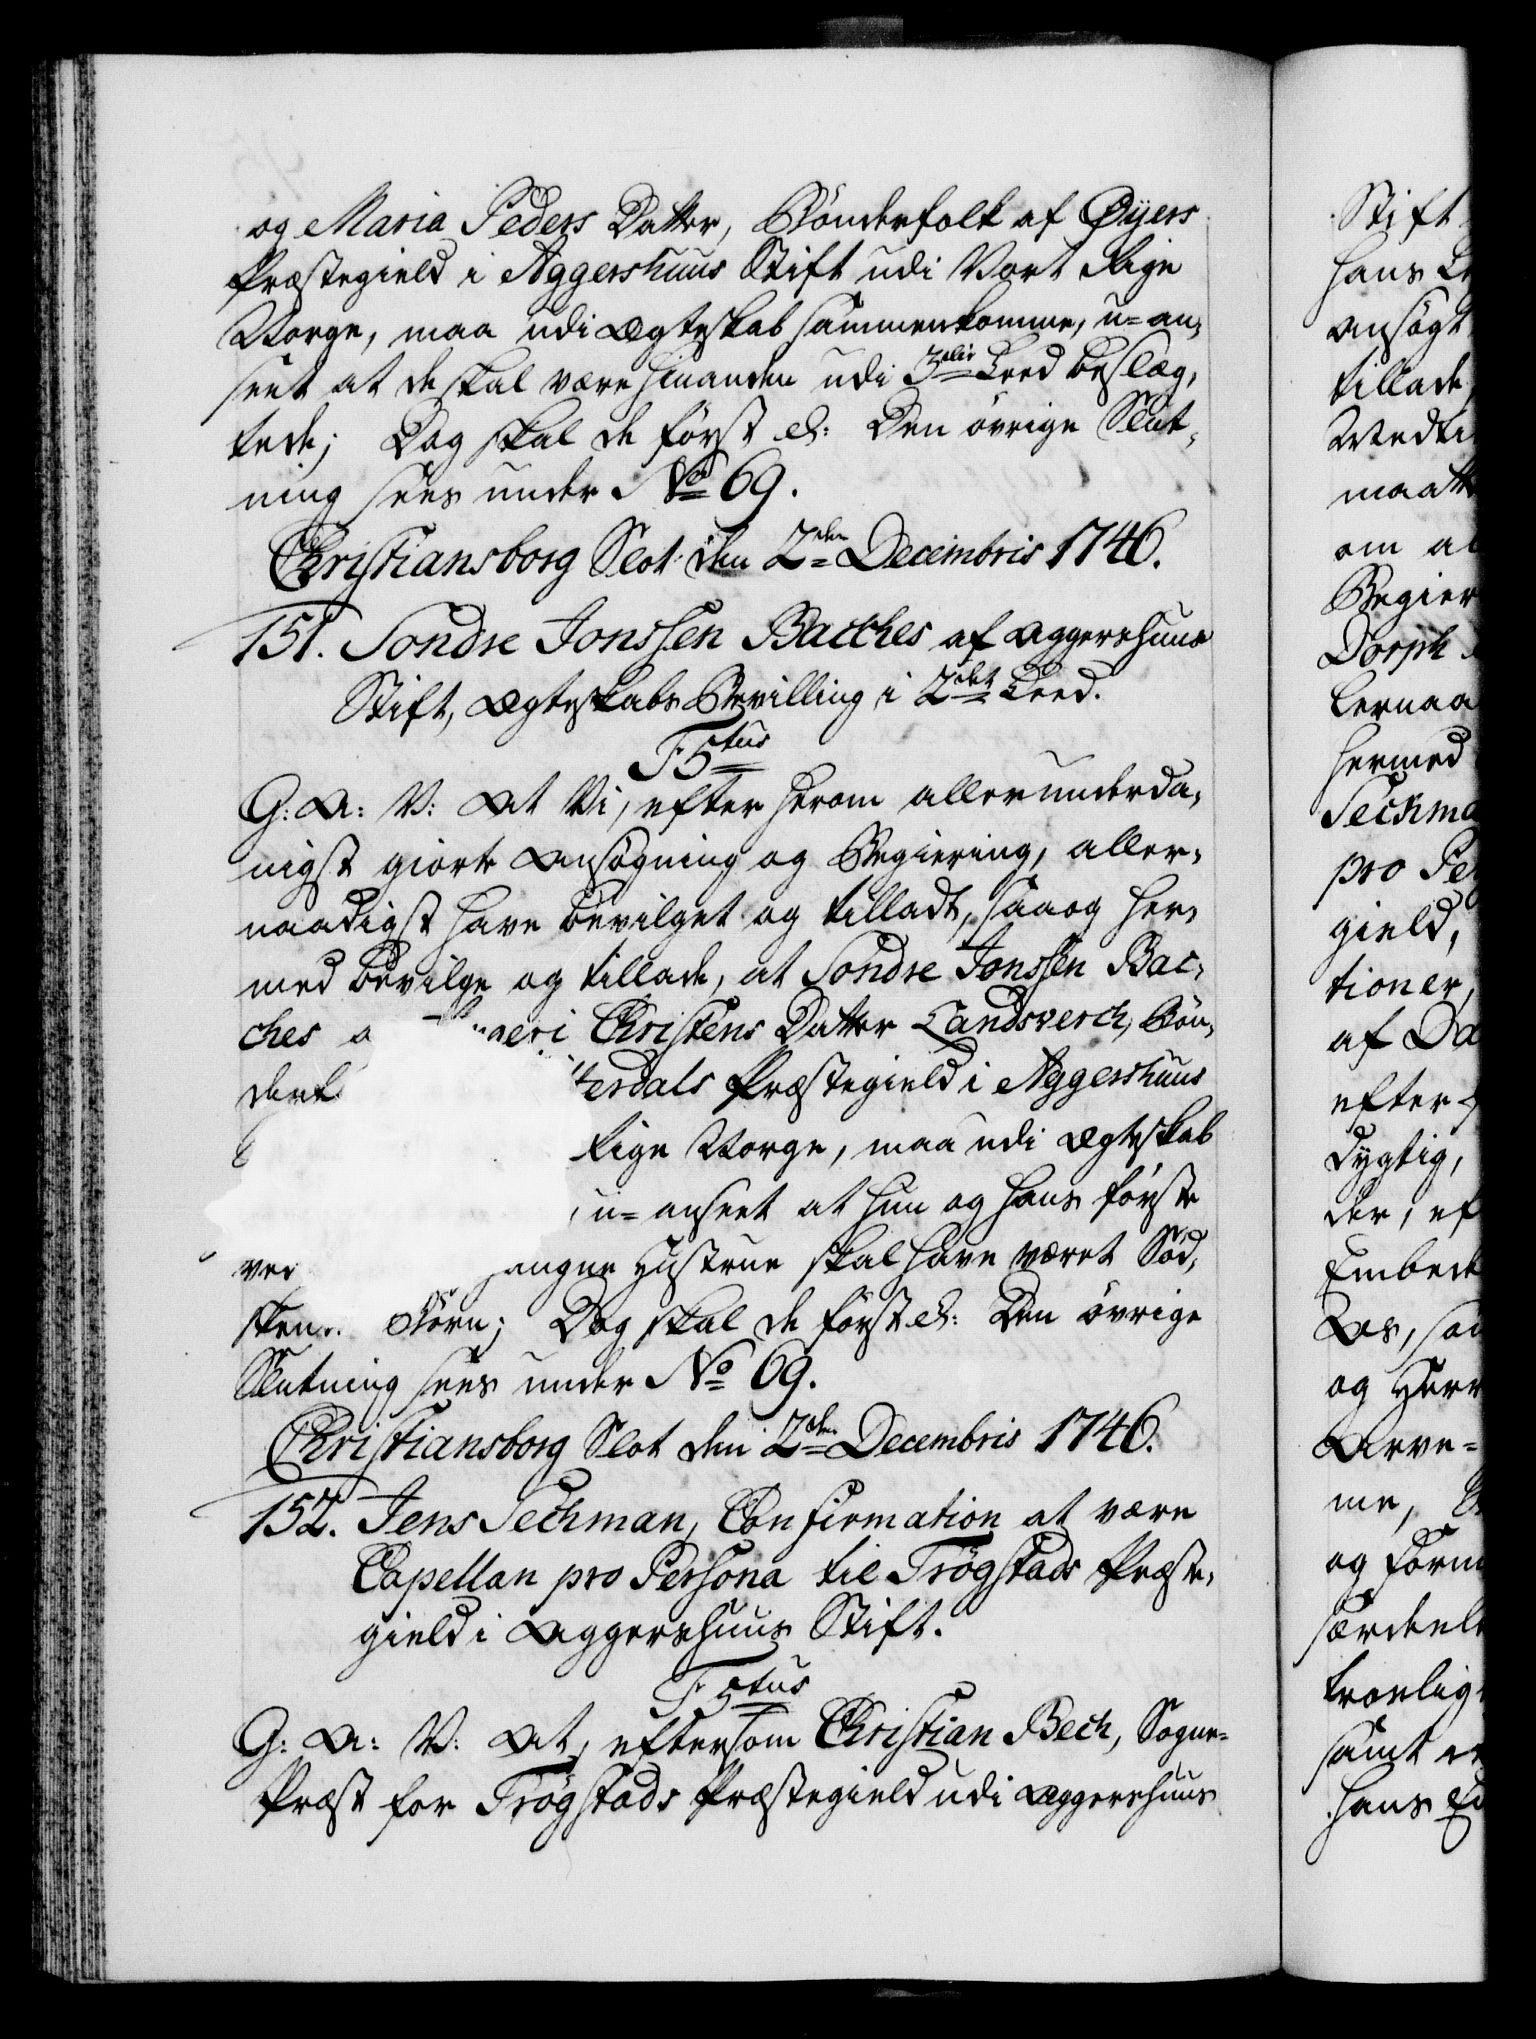 og Maria Peders Datter, Bönderfolk af Øyers
Præstegield i Aggershuus Stift udi Vort Rige
Norge, maa udi Ægteskab sammenkomme, u=an,
seet at de skal være hinanden udi 3die Leed beslæg,
tede; Dog skal de först &: Den övrige Slut,
ning sees under No 69.
Christiansborg Slot den 2den Decembris 1746.
151. Sondre Jonssen Bacches af Aggershuus
Stift, Ægteskabs Bevilling i 2det Leed.
F5tus
G: A: V: At Vi, efter herom allerunderda,
nigst giorte Ansögning og Begiering, aller,
naadigst have bevilget og tilladt, saa og her,
med bevilge og tillade, at Sondre Jonssen Bac,
ches Christens Datter Landsverch, Bön,
terdals Præstegield i Aggershuus
Rige Norge, maa udi Ægteskab
u=anseet at hun og hans förste
ved gangne Hustrue skal have været Söd,
sken Börn; Dog skal de först &: Den övrige
Slutning sees under No 69.
Christiansborg Slot den 2den Decembris 1746.
152. Jens Techman, Confirmation at være
Capellan pro Persona til Trögstads Præste,
gield i Aggershuus Stift.
F5tus
G: A: V: At, eftersom Christian Bech, Sogne=
Præst for Trögstads Præstegield udi Aggershuus
Stift
hans
ansögt
tillade
om
Begier
Dorph
hermed
Techma
pro Per
gield,
tioner,
af
efter
dygtig,
der, ef
Embede
og Herr
Arve=
me,
og
særdeel
troelig
samt
hans